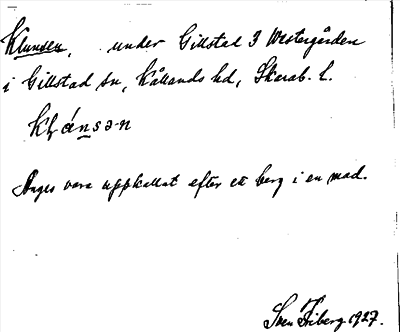 Klunsen, under Gillstad 3 Westergården
i Gillstad sn, Kållands hd, Skarab. l.
Anges vara uppkallat efter ett berg i en mad.
Sven Friberg 1927.